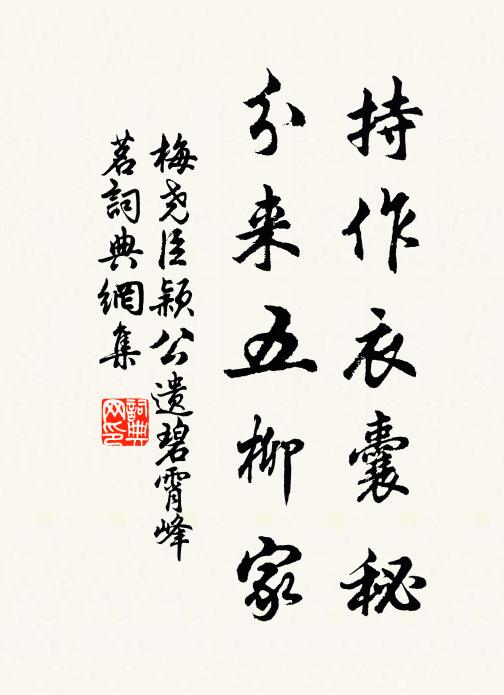 持作衣囊秘
分来五柳家
梅尧臣颖公遗碧霄峰
茗詞典網集
詞典网印